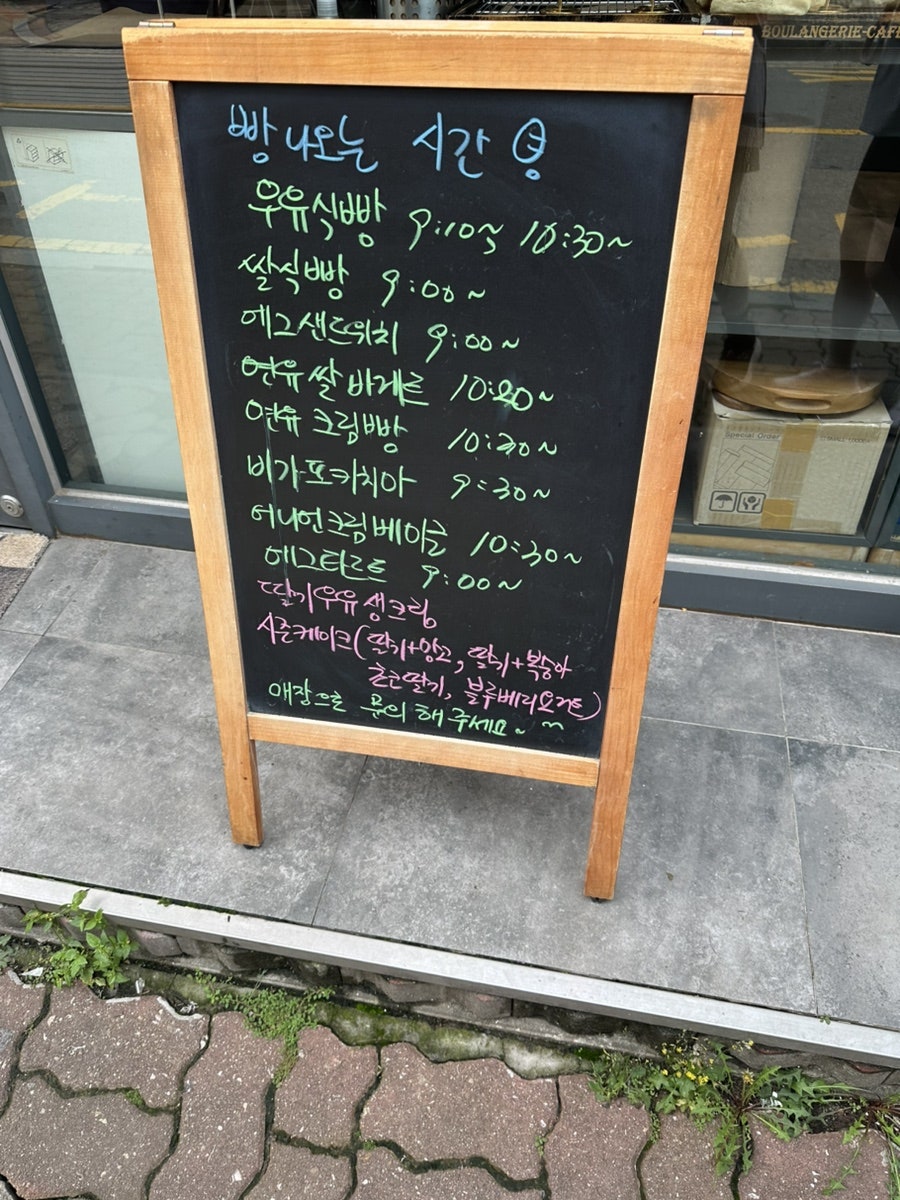 BOULANGERIE-CAFE
빵 나오는 시간
우유식빵 9:10~ 10:30~
쌀식빵 9:00~
에그샌드위치 9:00~
연유쌀바게트 10:20~
연유크림빵 10:20~
비가포카치아 9:30~
어니언크림베이글 10:30~
에그타르트 9:00~
딸기우유생크림
시즌케이크(딸기+망고, 딸기+복숭아
초코딸기, 블루베리요거트)
매장으로 문의 해 주세요~
Special Order